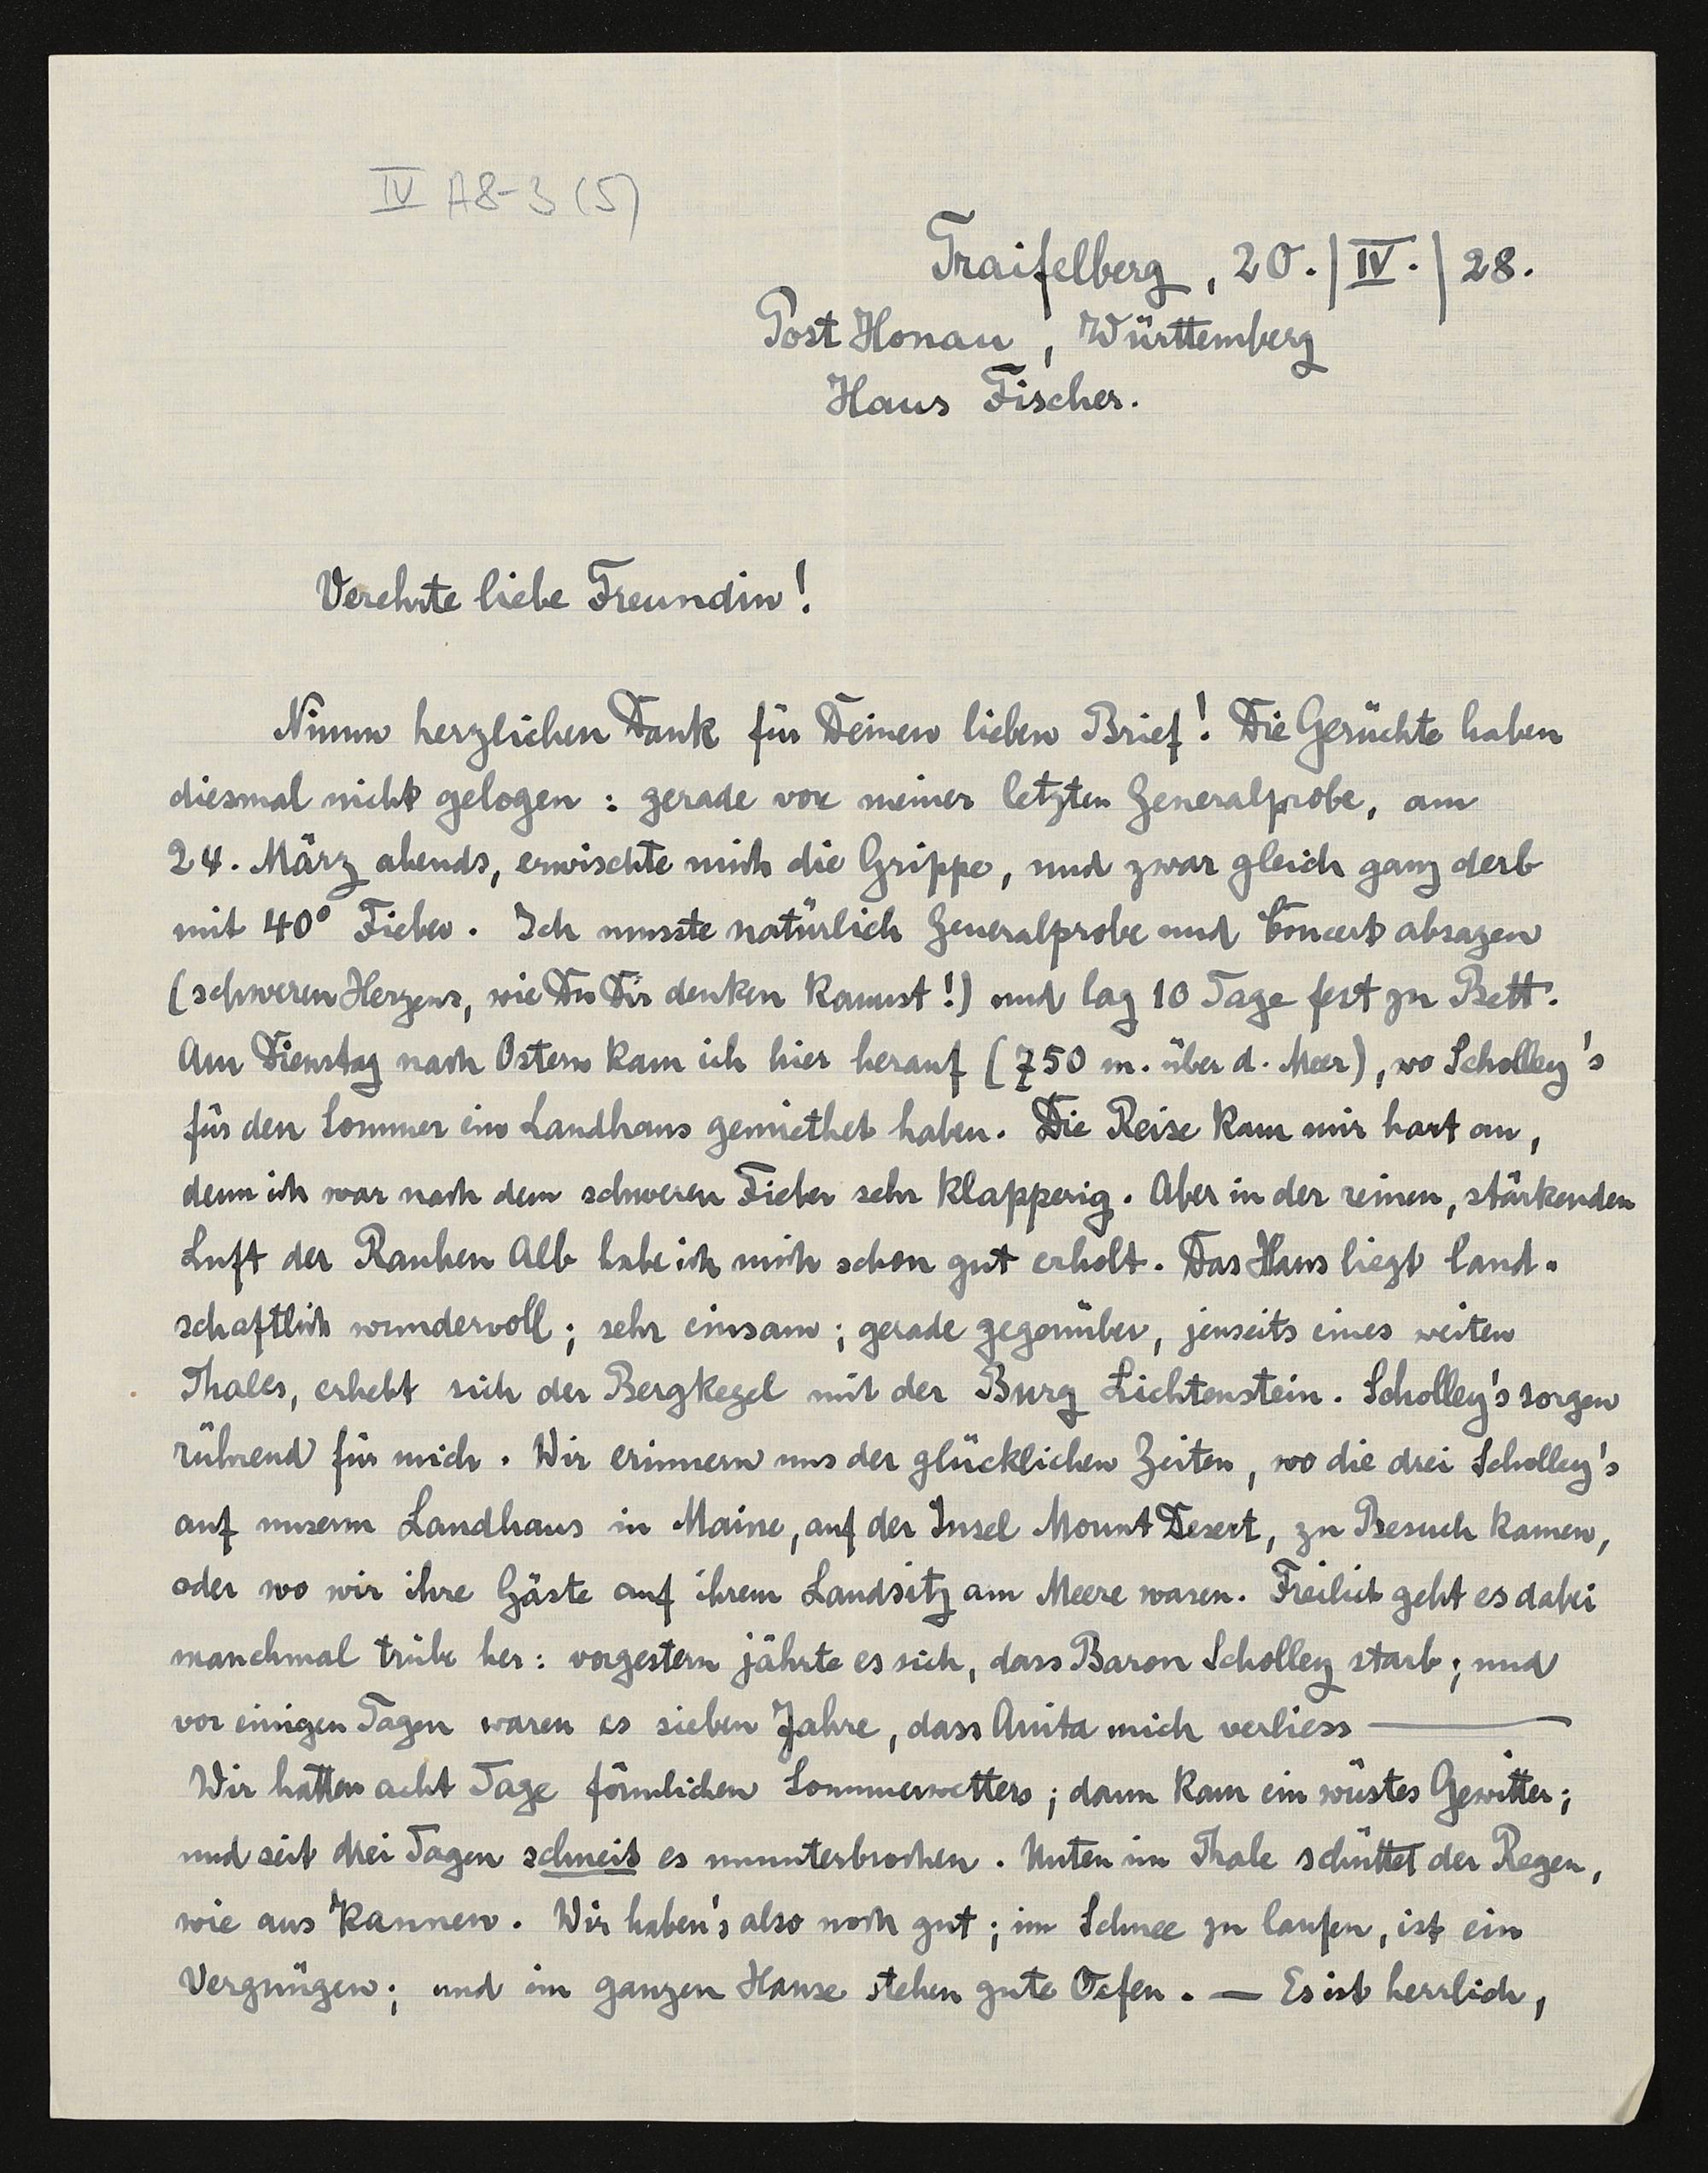 IV A8-3 (5)
Traifelberg, 20.|IV.|28.
Post Honau, Württemberg
Haus Fischer.
Verehrte liebe Freundin!
Nimm herzlichen Dank für Deinen lieben Brief! Die Gerüchte haben
diesmal nicht gelogen: gerade vor meiner letzten Generalprobe, am
24. März abends, erwischte mich die Grippe, und zwar gleich ganz derb
mit 40° Fieber. Ich musste natürlich Generalprobe und Concert absagen
(schweren Herzens, wie Du Dir denken kannst!) und lag 10 Tage fest zu Bett.
Am Dienstag nach Ostern kam ich hier herauf (750 m. über d. Meer), wo Scholley's
für den Sommer ein Landhaus gemiethet haben. Die Reise kam mir hart an,
denn ich war nach dem schweren Fieber sehr klapperig. Aber in der reinen, stärkenden
Luft der Rauhen Alb habe ich mich schon gut erholt. Das Haus liegt land-
schaftlich wundervoll; sehr einsam; gerade gegenüber, jenseits eines weiten
Thales, erhebt sich der Bergkegel mit der Burg Lichtenstein. Scholley's sorgen
rührend für mich. Wir erinnern uns der glücklichen Zeiten, wo die drei Scholley's
auf unserm Landhaus in Maine, auf der Insel Mount Desert, zu Besuch kamen,
oder wo wir ihre Gäste auf ihrem Landsitz am Meere waren. Freilich geht es dabei
manchmal trübe her: vorgestern jährte es sich, dass Baron Scholley starb; und
vor einigen Tagen waren es sieben Jahre, dass Anita mich verliess —
Wir hatten acht Tage förmlichen Sommerwetters; dann kam ein wüstes Gewitter;
und seit drei Tagen schneit es ununterbrochen. Unten im Thale schüttet der Regen,
wie aus Kannen. Wir haben's also noch gut; im Schnee zu laufen, ist ein
Vergnügen; und im ganzen Hause stehen gute Oefen. — Es ist herrlich,